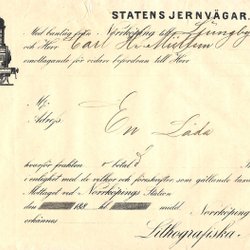 STATENS JERNVÄGAR.
Med bantåg från Norrköping till Ljungby
och Herr Carl Hr Multin
emottagande för vidare befordran till Herr
M:
Adress
En Låda
hvarför frakten betal
i enlighet med de vilkor och föreskrifter, som gällande
Mottaget vid Norrköpings Station
den 188 med
Norrköping
erkännes
Lithografiska